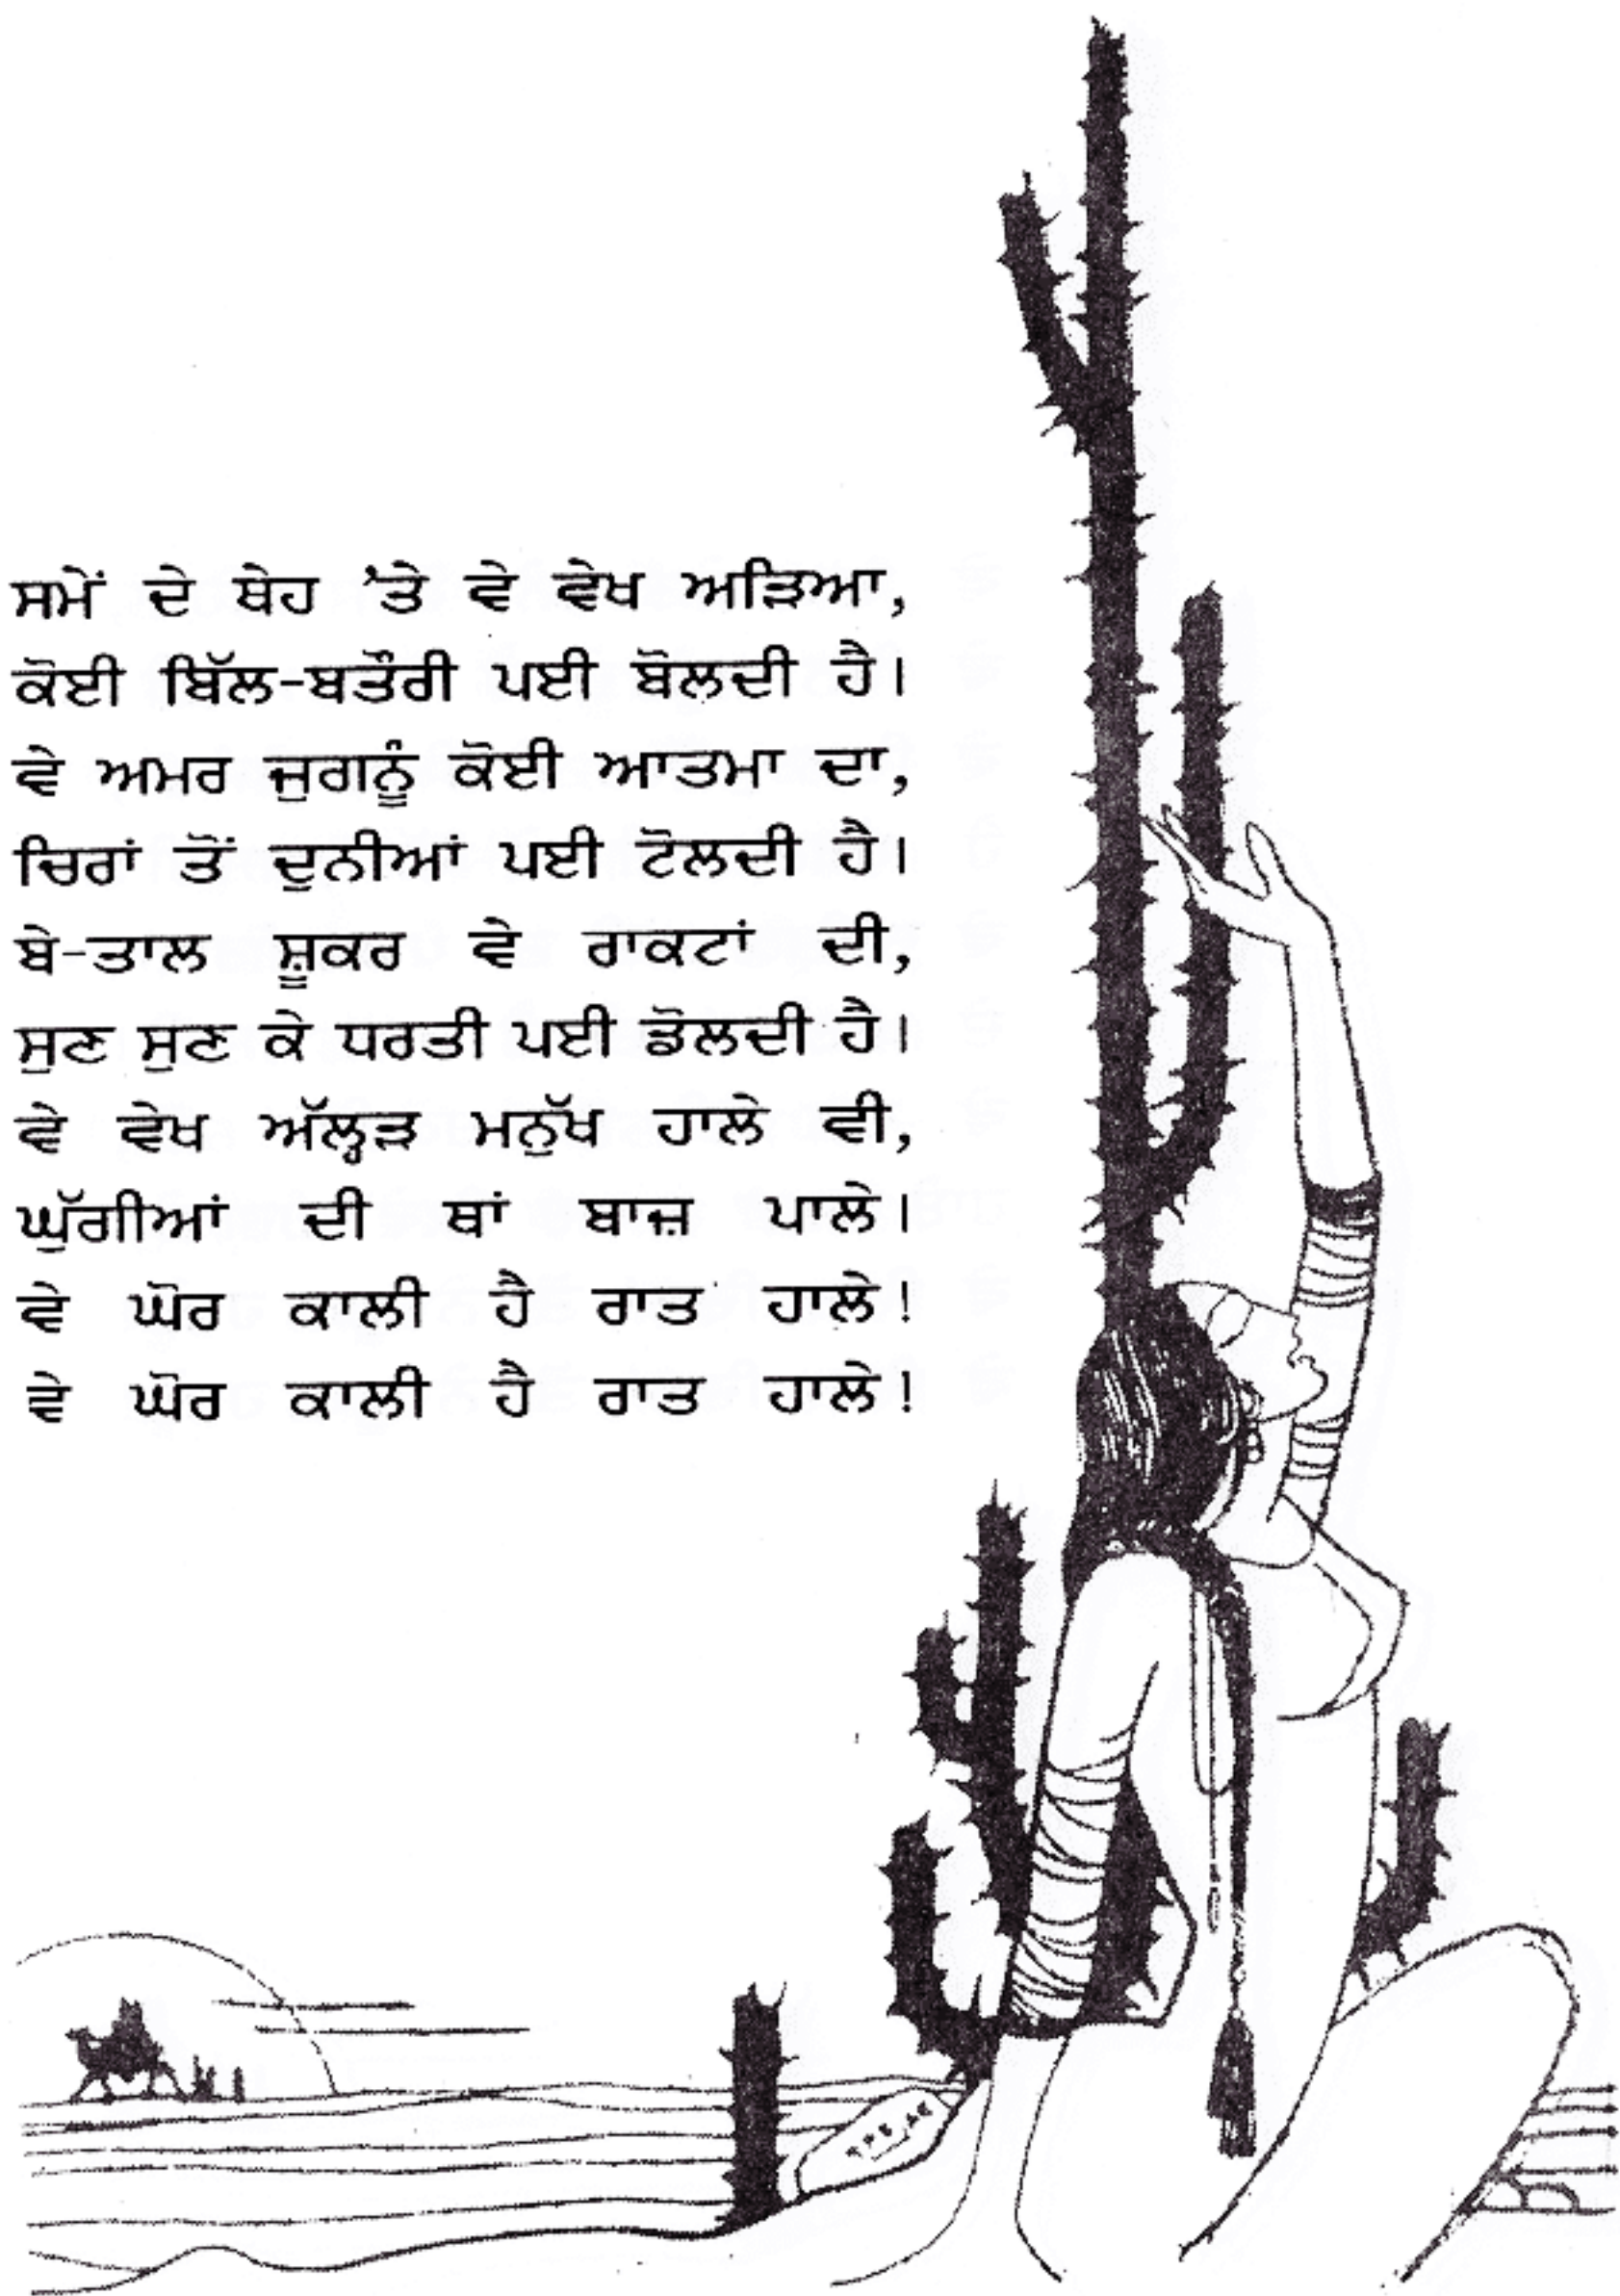 ਸਮੇਂ ਦੇ ਥੇਹ 'ਤੇ ਵੇ ਵੇਖ ਅੜਿਆ,
ਕੋਈ ਬਿੱਲ-ਬਤੌਰੀ ਪਈ ਬੋਲਦੀ ਹੈ।
ਵੇ ਅਮਰ ਜੁਗਨੂੰ ਕੋਈ ਆਤਮਾ ਦਾ,
ਚਿਰਾਂ ਤੋਂ ਦੁਨੀਆਂ ਪਈ ਟੋਲਦੀ ਹੈ।
ਬੇ-ਤਾਲ ਸ਼ੂਕਰ ਵੇ ਰਾਕਟਾਂ ਦੀ,
ਸੁਣ ਸੁਣ ਕੇ ਧਰਤੀ ਪਈ ਡੋਲਦੀ ਹੈ।
ਵੇ ਵੇਖ ਅੱਲ੍ਹੜ ਮਨੁੱਖ ਹਾਲੇ ਵੀ,
ਘੁੱਗੀਆਂ ਦੀ ਥਾਂ ਬਾਜ਼ ਪਾਲੇ।
ਵੇ ਘੋਰ ਕਾਲੀ ਹੈ ਰਾਤ ਹਾਲੇ!
ਵੇ ਘੋਰ ਕਾਲੀ ਹੈ ਰਾਤ ਹਾਲੇ!